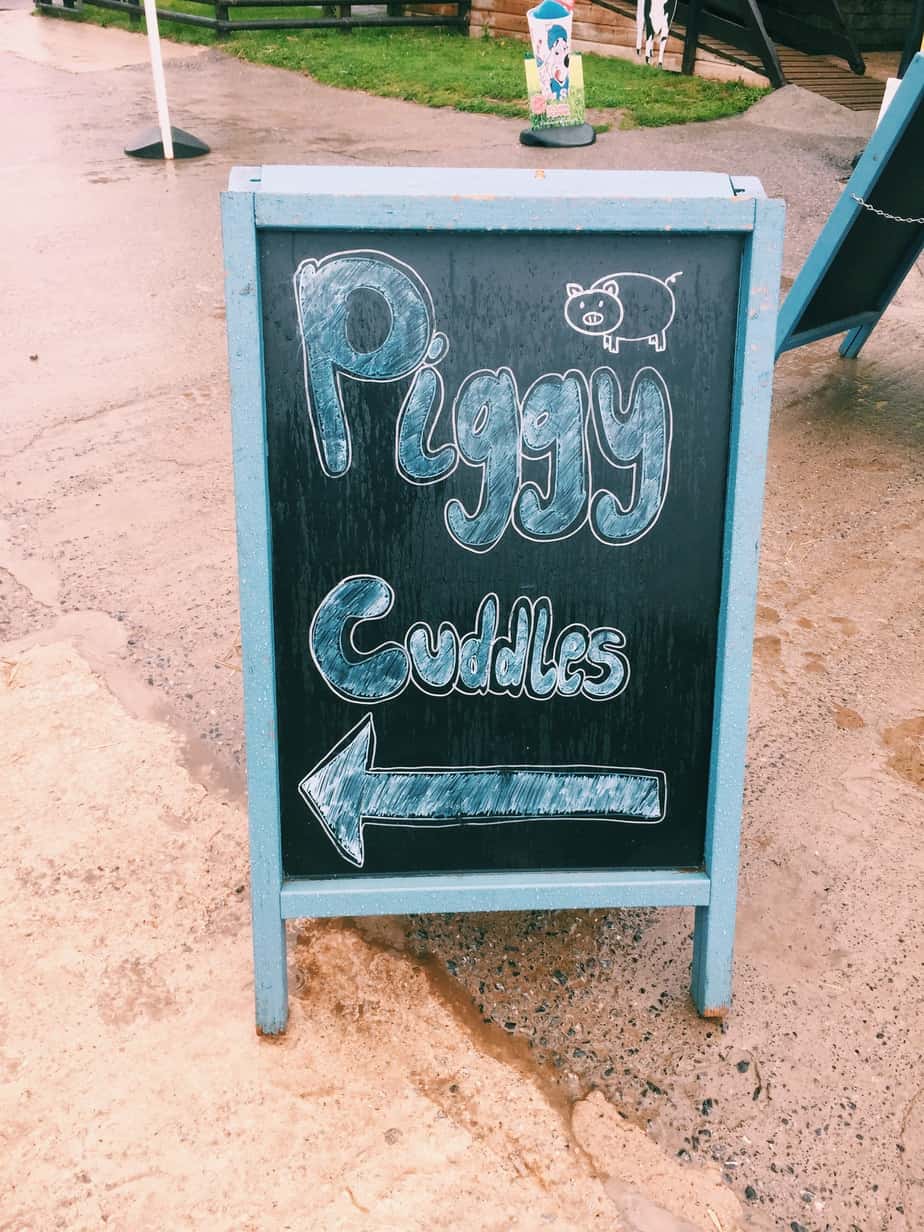 Piggy
Cuddles